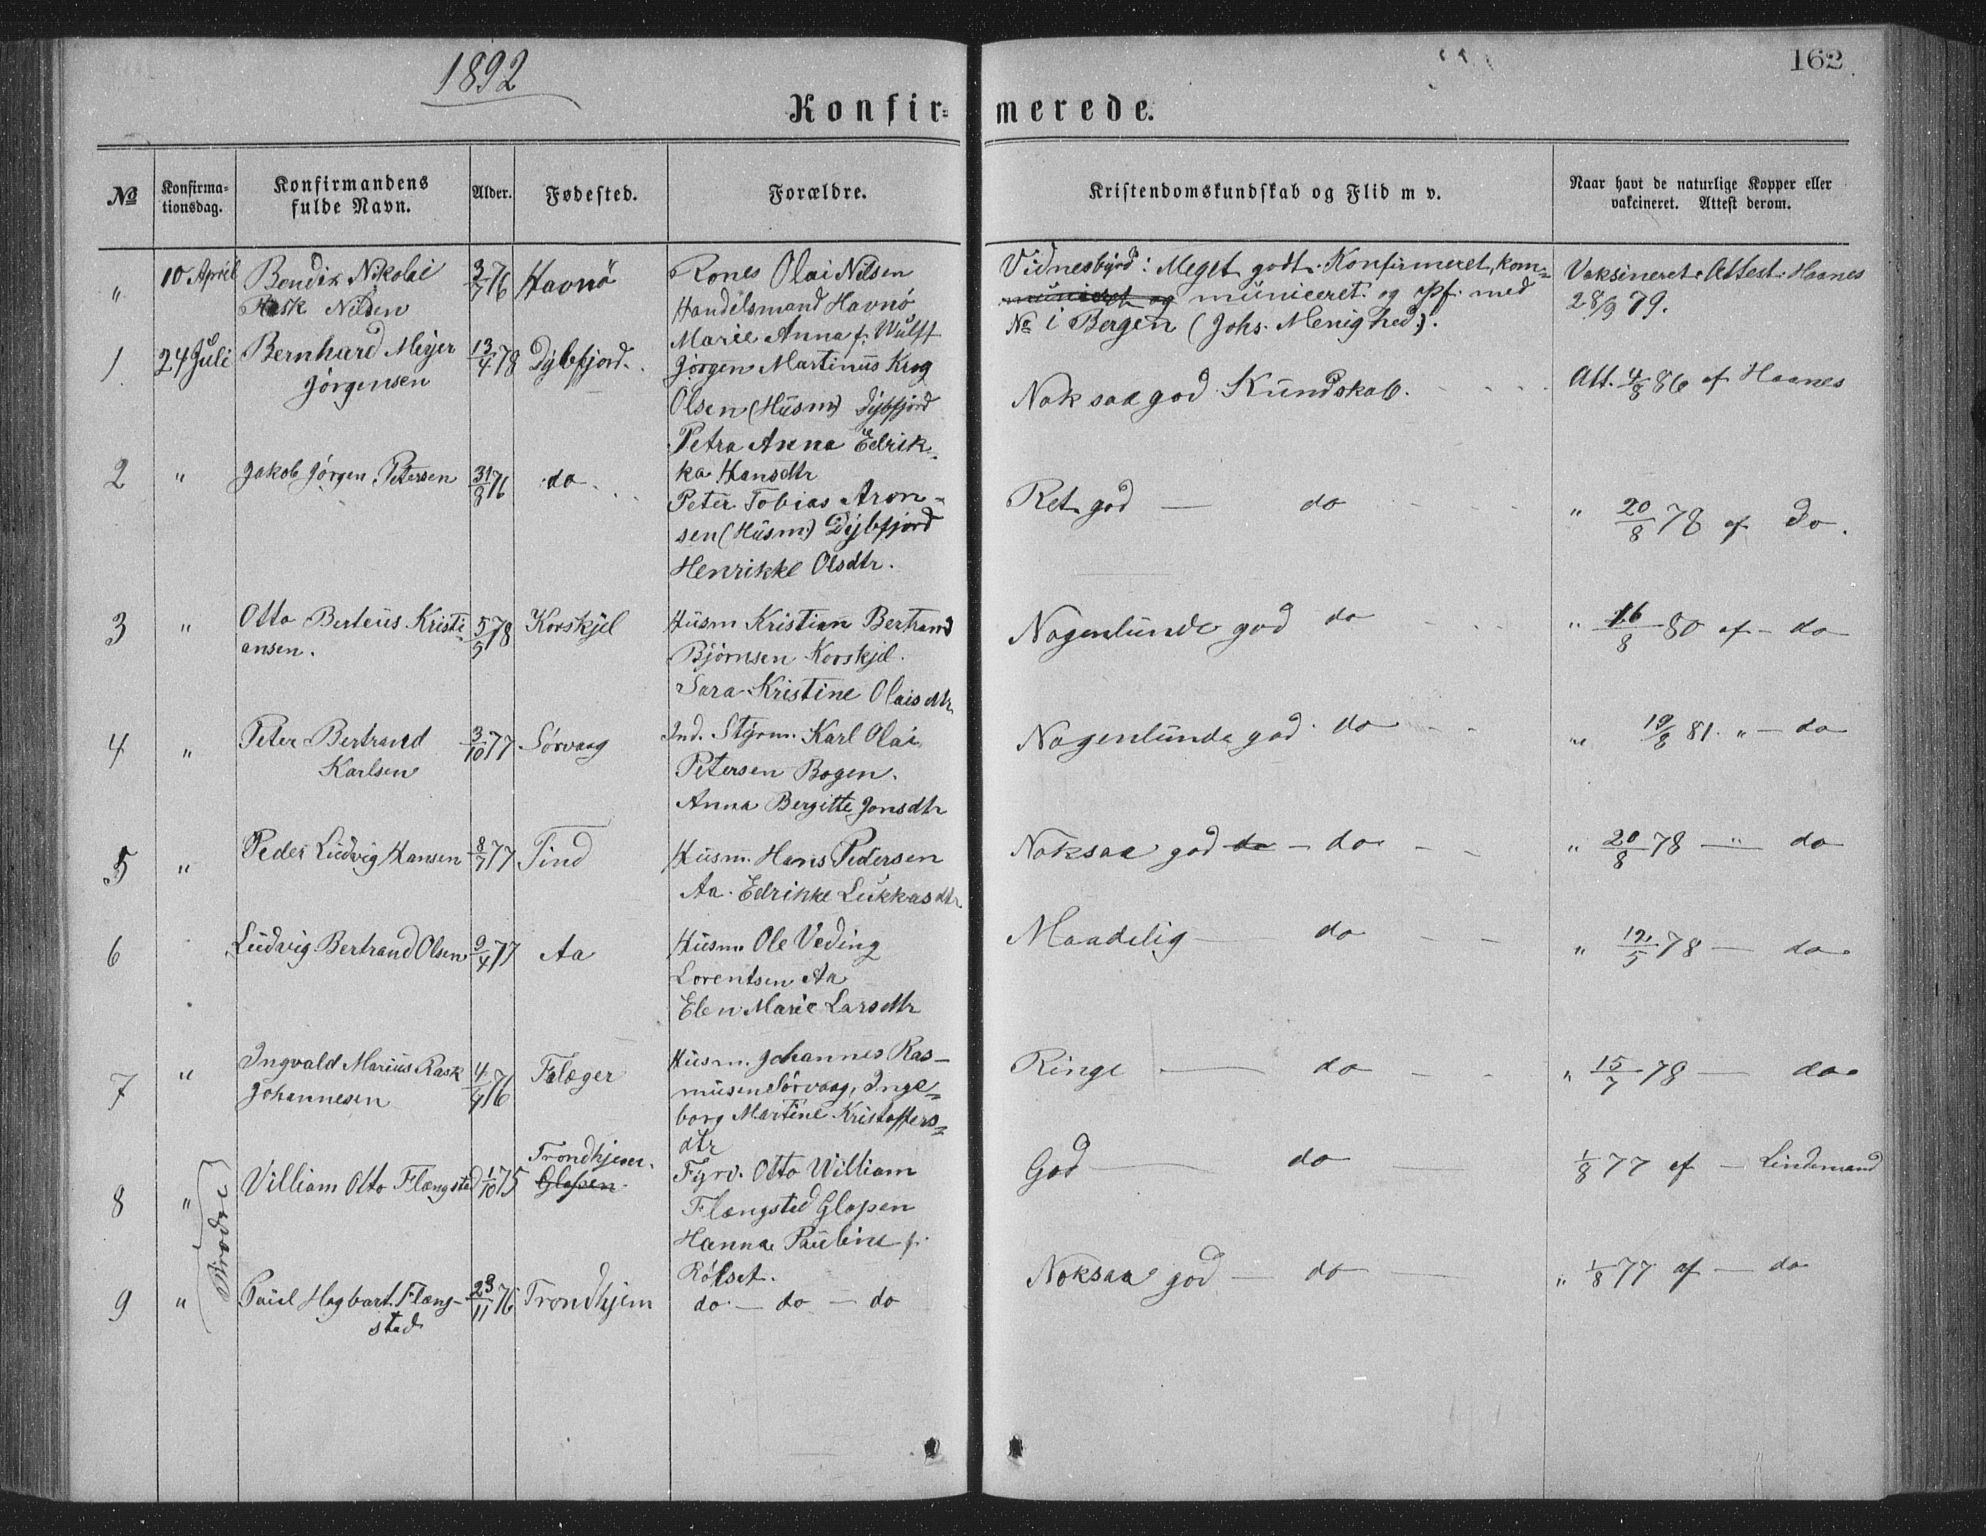 1892
162
Konfir-merede.
No
Konfirma-
tionsdag.
Konfirmandens
fulde Navn.
Alder.
Fødested.
Forældre.
Kristendomskundskab og Flid m v.
Naar havt de naturlige Kopper eller
vakcineret. Attest derom.
" 10 April Bendix Nikolai 3/7 76 Havnö Rones Olai Nilsen
Rask Nilsen Handelsmand Havnö
Marie Anna f. Wulff
Vidnesbyrd: Meget godt. Konfirmeret, kom=
municeret og municeret og opf. med
No i Bergen (Johs. Menighed).
Vaksineret Attest Haanes
28/9 79.
1 24 Juli Bernhard Meyer 13/4 78 Dybfjord.
Jörgensen
Jörgen Martinus Krog
Olsen (Husm) Dybfjord
Petra Anna Edrik-
ka Hansdtr
Nok saa god Kundskab.
Att. 4/8 86 af Haanes
2 " Jakob Jörgen Petersen 31/8 76 do
Peter Tobias Aron-
sen (Husm) Dybfjord
Henrikke Olsdtr.
Ret god — do
" 20/8 78 af Do.
3 " Otto Berteus Kristi- 5/5 78 Korskjel
ansen.
Husm Kristian Bertrand
Björnsen Korskjel.
Sara Kristine Olaisdtr
Nogenlunde god do
" 16/8 80 af — do
4 " Peter Bertrand 3/10 77 Sörvaag
Karlsen
Ind. Styrm. Karl Olai
Petersen Bogen.
Anna Bergitte Jonsdtr
Nogenlunde god do
" 19/8 81. " — do
5 " Peder Ludvig Hansen 8/7 77 Tind
Husm. Hans Pedersen
Aa. Edrikke Lukkasdtr
Noksaa god do — do
" 20/8 78 — " do
6 Ludvig Bertrand Olsen 9/4 77 Aa
Husm. Ole Veding
Lorentsen Aa
Elen Marie Larsdtr
Maadelig — do
" 12/5 78 — do
7 " Ingvald Marius Rask 4/4 76 Flæger
Johannesen
Husm. Johannes Ras-
musen Sörvaag, Inge=
borg Martine Kristoffers=
dtr
Ringe — do
" 15/7 78 — do
Brødre
8 " Villiam Otto Flængsted 1/10 75 Trondhjem.
Glapen
Fyrv. Otto William
Flængsted Glapen
Hanna Pauline f.
Rölset.
God — do
1/8 77 af — Lindemand
9 " Paul Hagbart Flæng- 23/11 76 Trondhjem
stad
do — do — do
Noksaa god — do
" 1/8 77 af — do